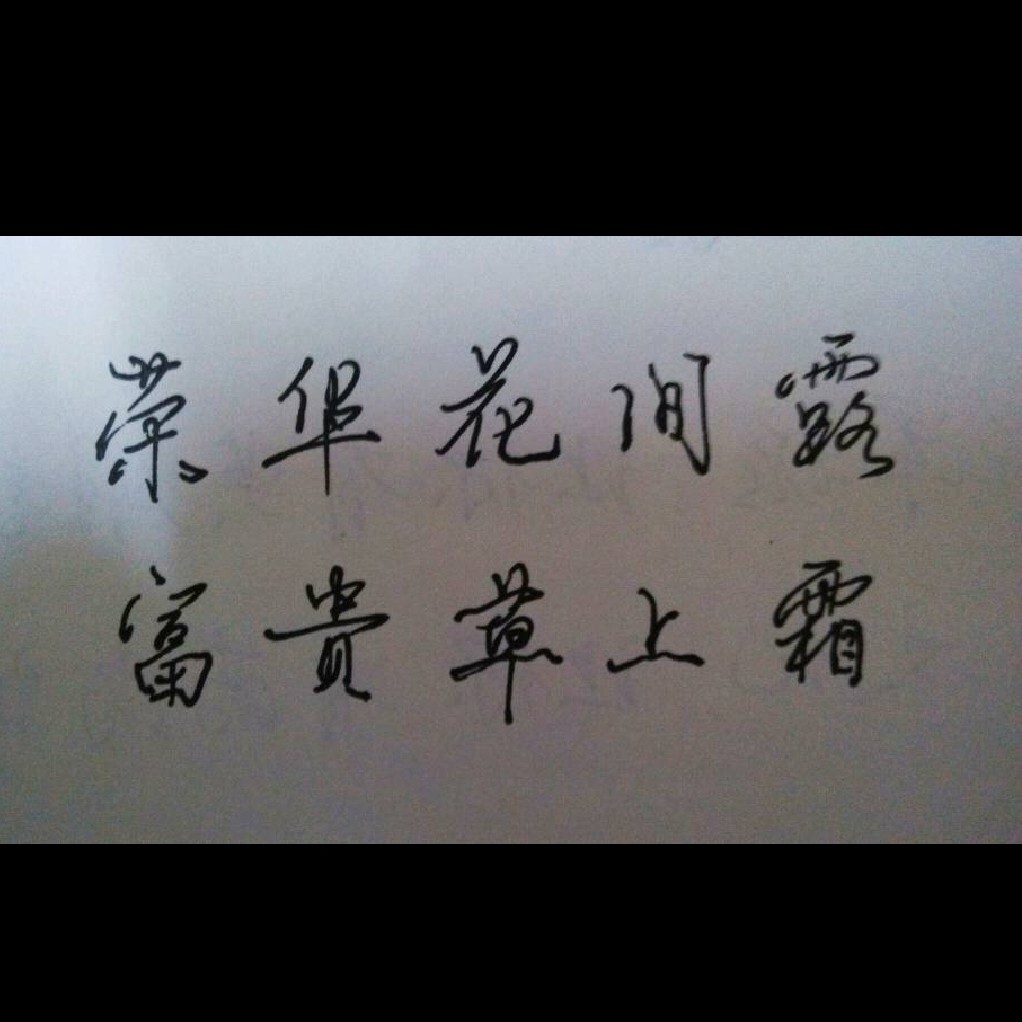 荣华花间露
富贵草上霜